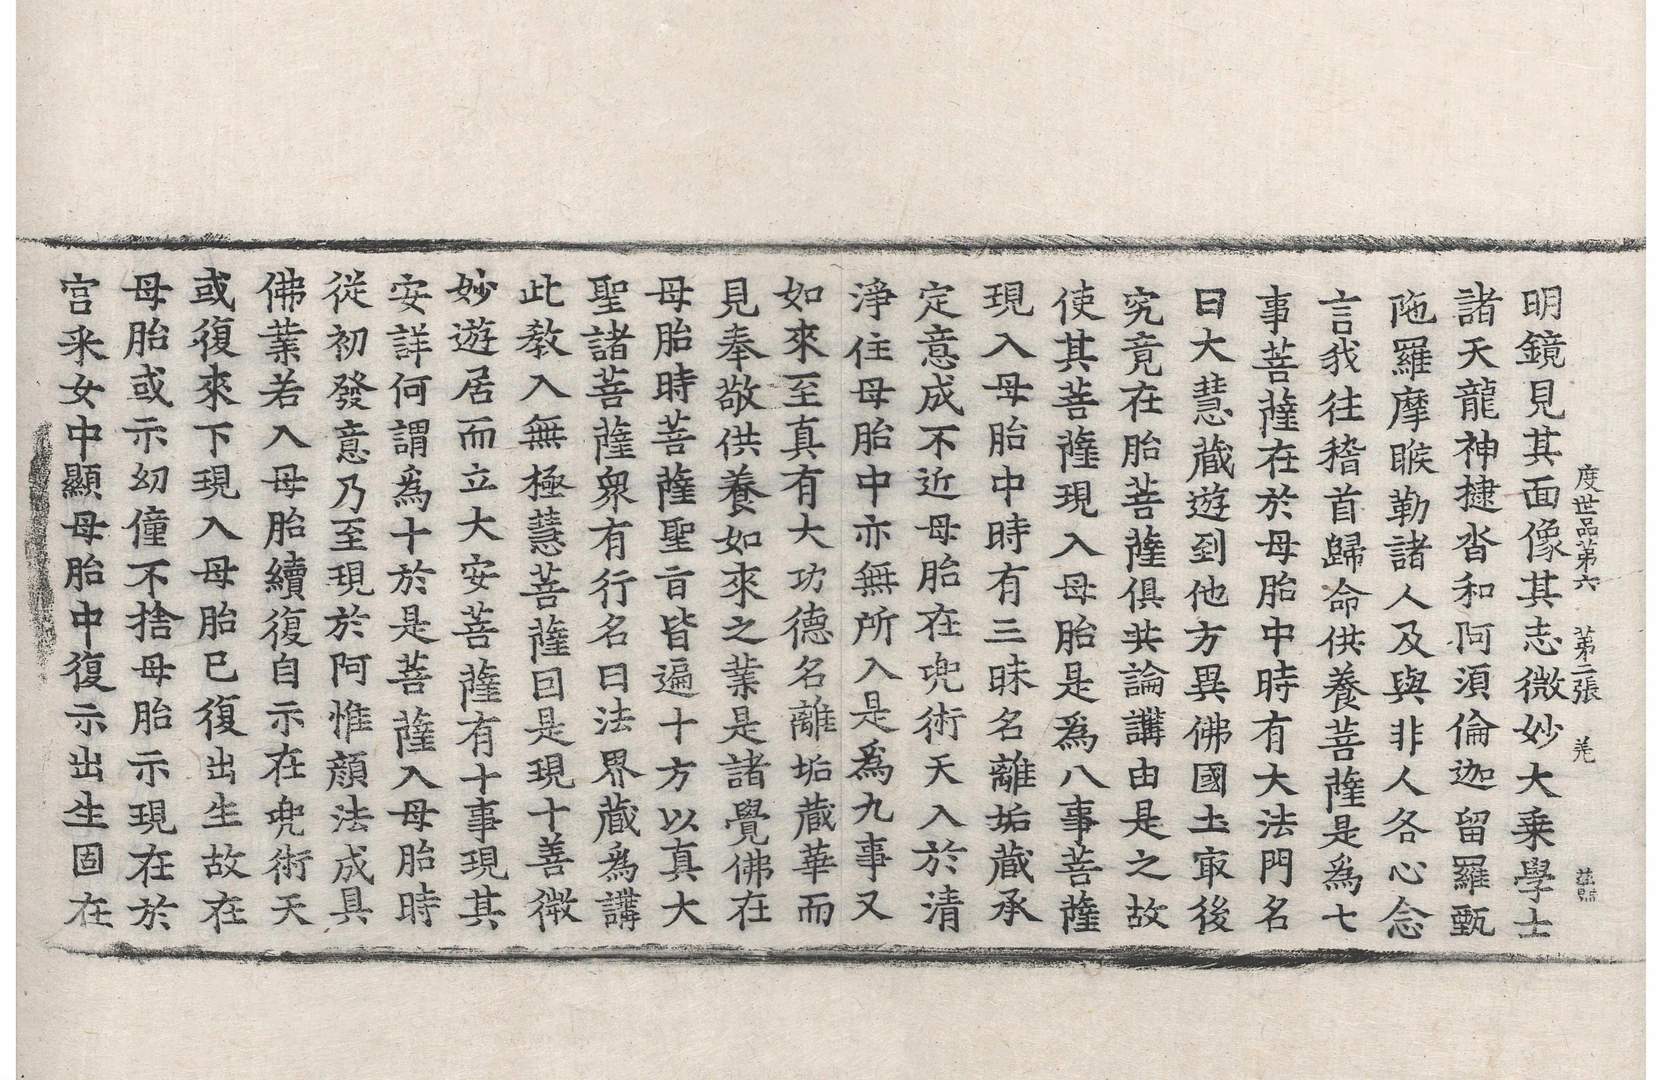 度世品第六　第二張　羌
明鏡見其面像其志微妙大乗學士
諸天龍神揵沓和阿須倫迦留羅甄
陁羅摩睺勒諸人及與非人各心念
言我往稽首歸命供養菩薩是爲七
事菩薩在於母胎中時有大法門名
曰大慧藏遊到他方異佛國土㝡後
究竟在胎菩薩俱共論講由是之故
使其菩薩現入母胎是爲八事菩薩
現入母胎中時有三昧名離垢藏承
定意成不近母胎在兜術天入於清
淨住母胎中亦無所入是爲九事又
如來至真有大功德名離垢藏華而
見奉敬供養如來之業是諸覺佛在
母胎時菩薩聖旨皆遍十方以真大
聖諸菩薩衆有行名曰法界藏爲講
此教入無極慧菩薩回是現十善微
妙遊居而立大安菩薩有十事現其
安詳何謂爲十於是菩薩入母胎時
從初發意乃至現於阿惟顔法成具
佛業若入母胎續復自示在兜術天
或復來下現入母胎已復出生故在
母胎或示幼僮不捨母胎示現在於
宫采女中顯母胎中復示出生固在